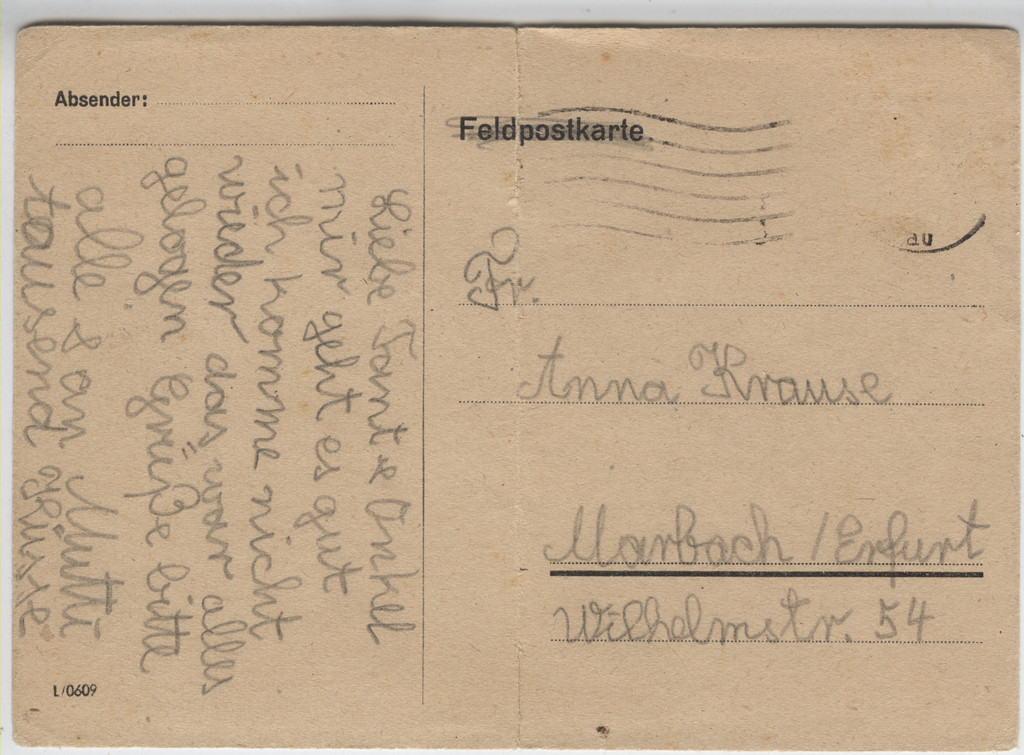 Absender:
Feldpostkarte
au
Fr.
Anna Krause
Marbach / Erfurt
Wilhelmstr. 54
Liebe Tante & Onkel
mir geht es gut
ich komme nicht
wieder das war alles
gelogen Grüße bitte
alle & an Mutti
tausend Küsse
L/0609